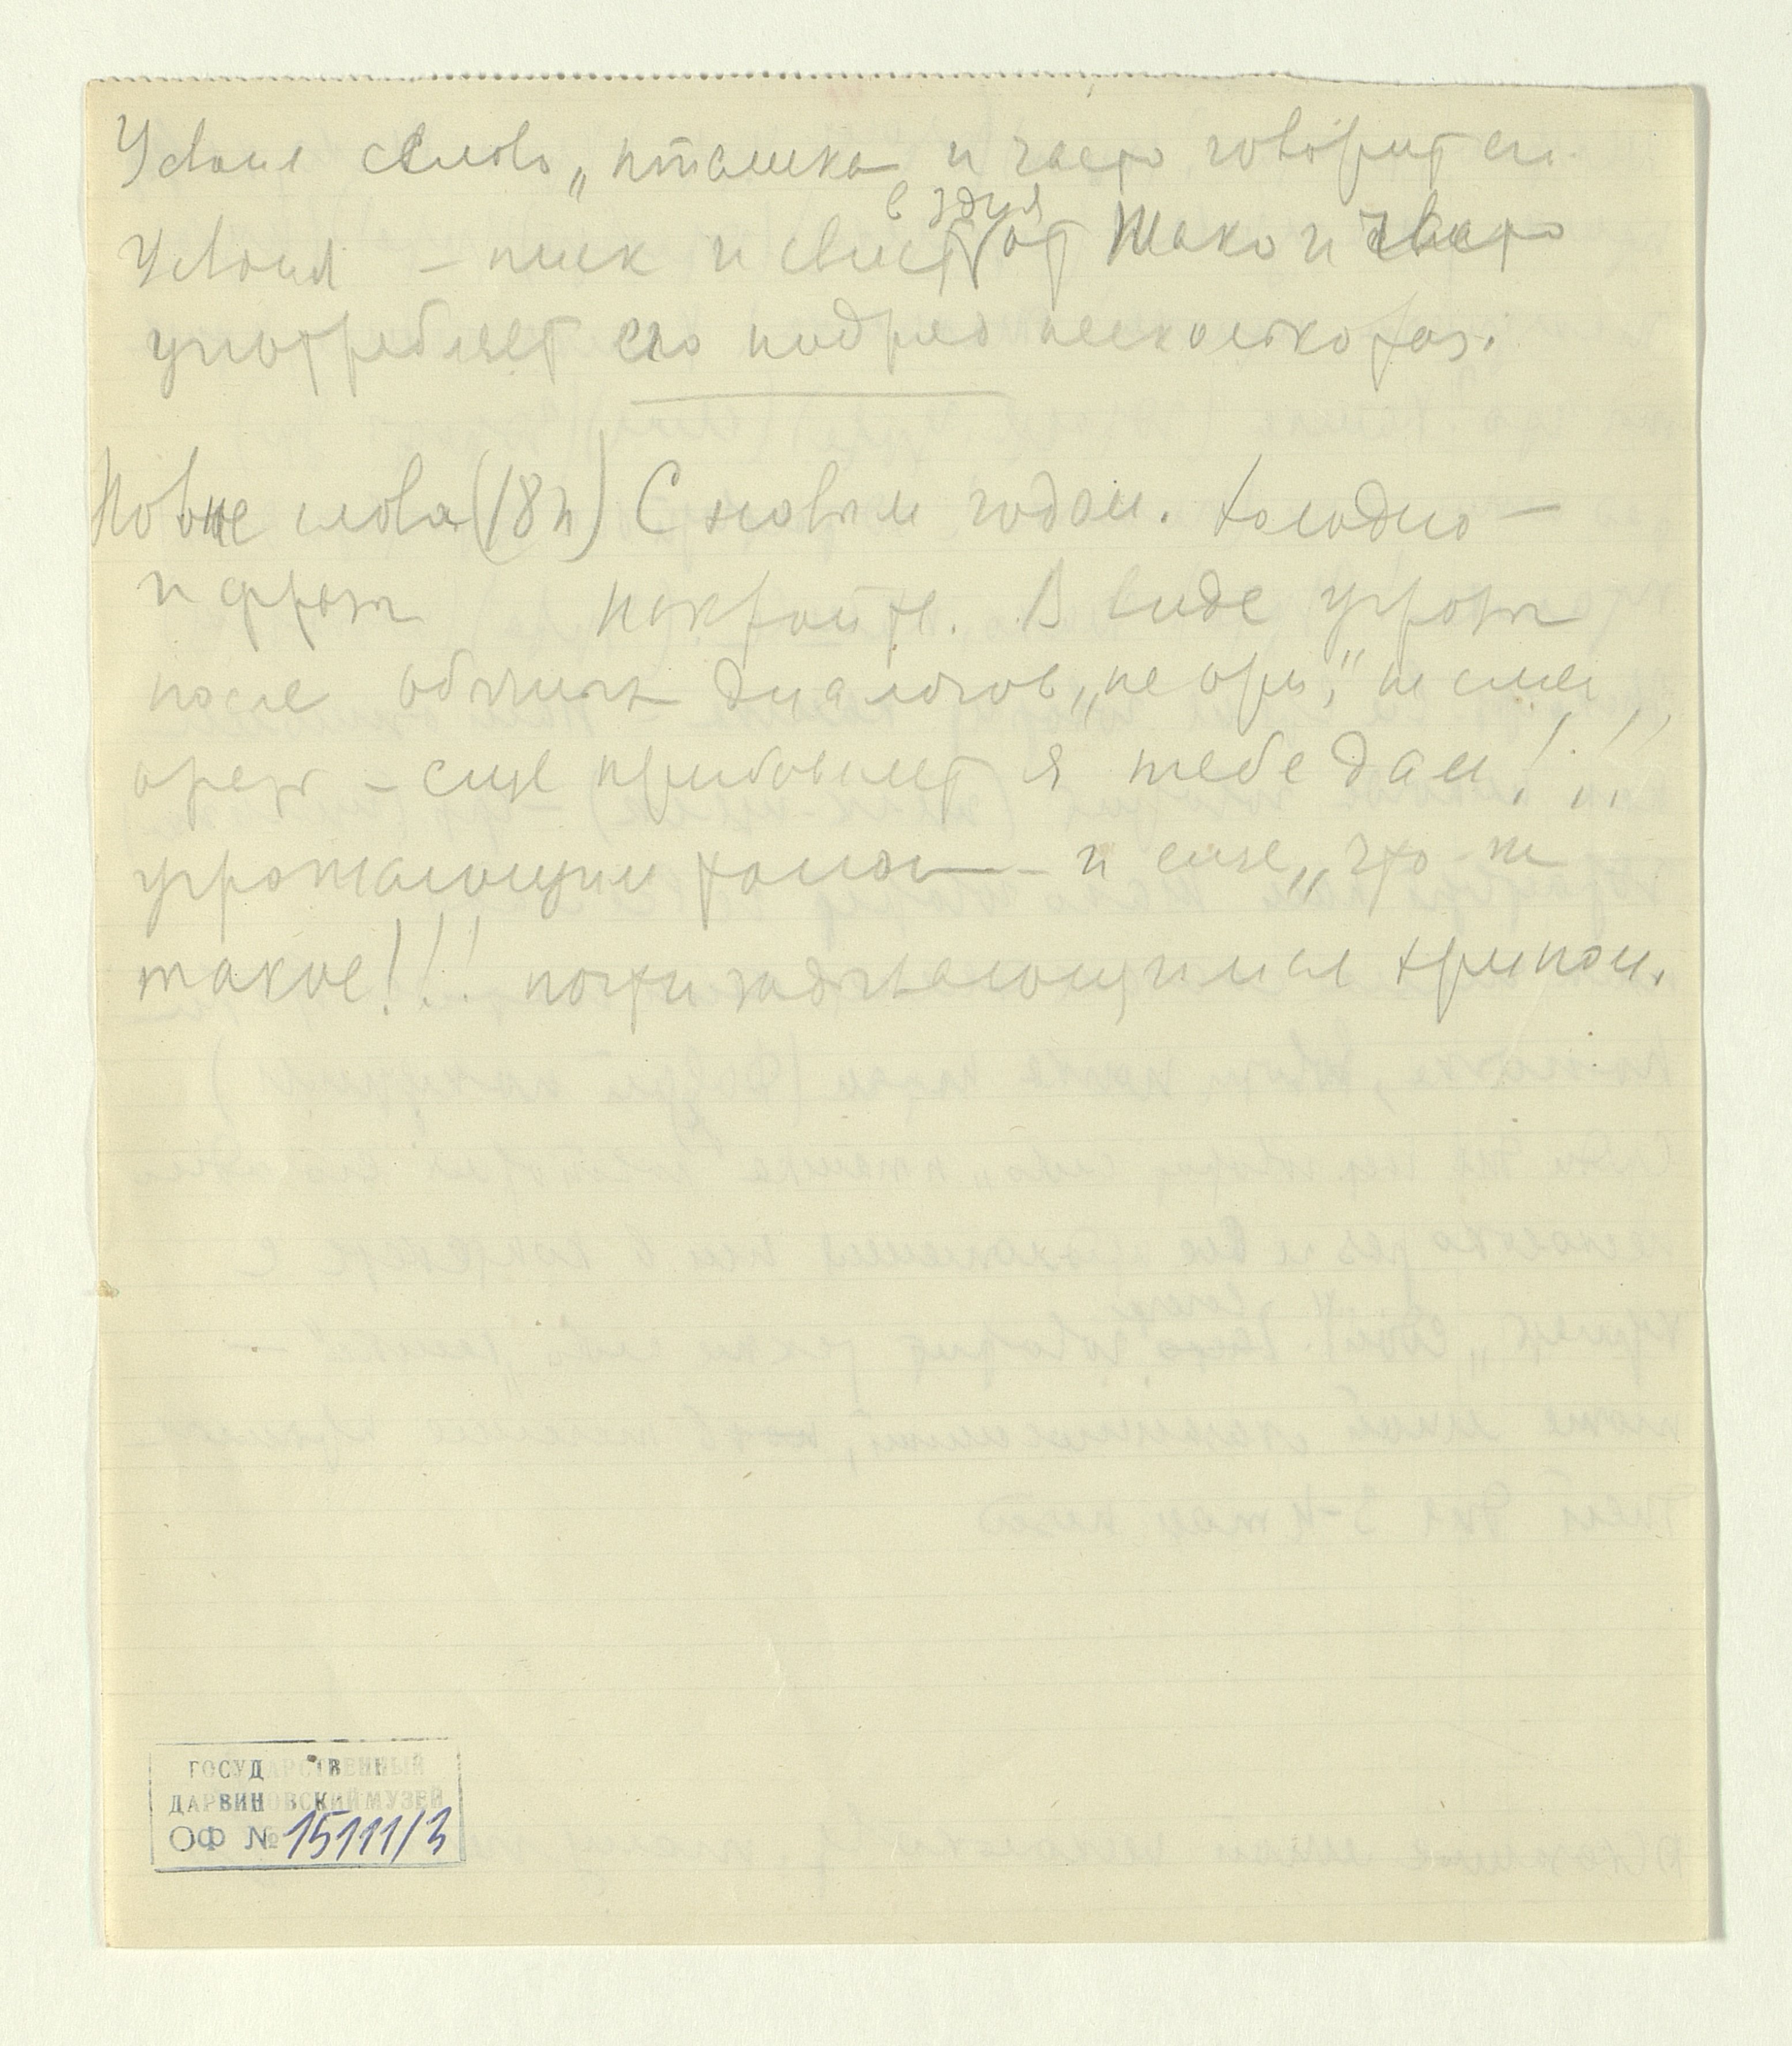 Усвоил слово „пташка и часто говорит его.
Усвоил – писк и свист от Жако и часто
употребляет его подряд несколько раз.
Новые слова (18 н) С новым годом. Холодно –
и фразы покройте. В виде угрозы
после обычных диалогов „не ори," не смей
орать – еще прибавляет я тебе дам!!!
угрожающим тоном – и еще „что ж
такое!!! почти задыхающимся хрипом.
ГОСУДАРСТВЕННЫЙ
ДАРВИНОВСКИЙ МУЗЕЙ
ОФ № 15111/3